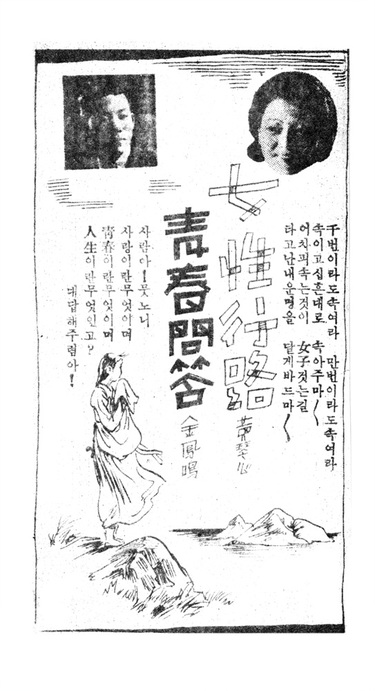 千번이라도속여라 만번이라도속여라
속이고십흔대로 속아주마―
어치피속는것이 女子것는길
타고난내운명을 달게바드마―
女性行路
黃琴心
靑春問答
金鳳鳴
사람아!뭇노니
사랑이란무엇이며
靑春이란무엇이며
人生이란무엇인고?
대답해주렴아!